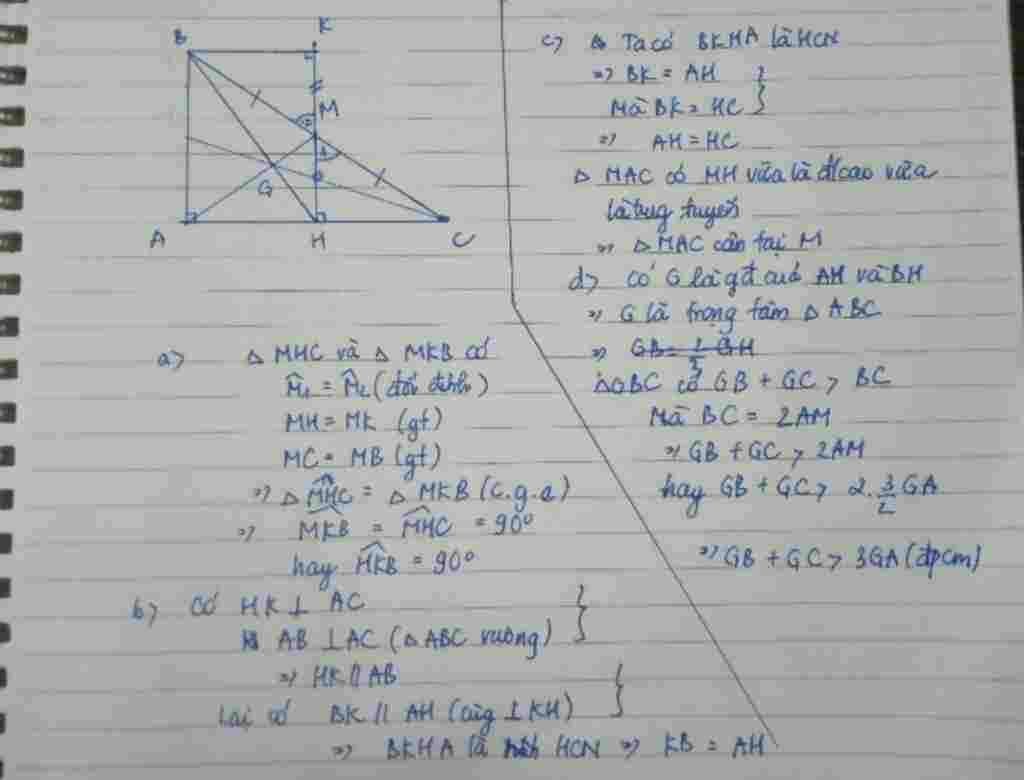 B
K
M
2
1
G
A
H
C
a) △ MHC và △ MKB có
M̂₁ = M̂₂ (đối đỉnh)
MH = MK (gt)
MC = MB (gt)
=> △ MHC = △ MKB (c.g.c)
=> MKB = MHC = 90°
hay HKB = 90°
b) Có HK ⊥ AC
AB ⊥ AC (△ ABC vuông)
=> HK // AB
Lại có BK // AH (cùng ⊥ KH)
=> BKHA là HCN => KB = AH
c) Ta có BKHA là HCN
=> BK = AH
Mà BK = HC
=> AH = HC
△ MAC có MH vừa là đ/cao vừa
là trug tuyến
=> △ MAC cân tại M
d) Có G là gđ AH và BH
=> G là trọng tâm △ ABC
=> GB = GH
△GBC có GB + GC > BC
Mà BC = 2AM
=> GB + GC > 2AM
hay GB + GC > 2. 3/2 GA
=> GB + GC > 3GA (đpcm)